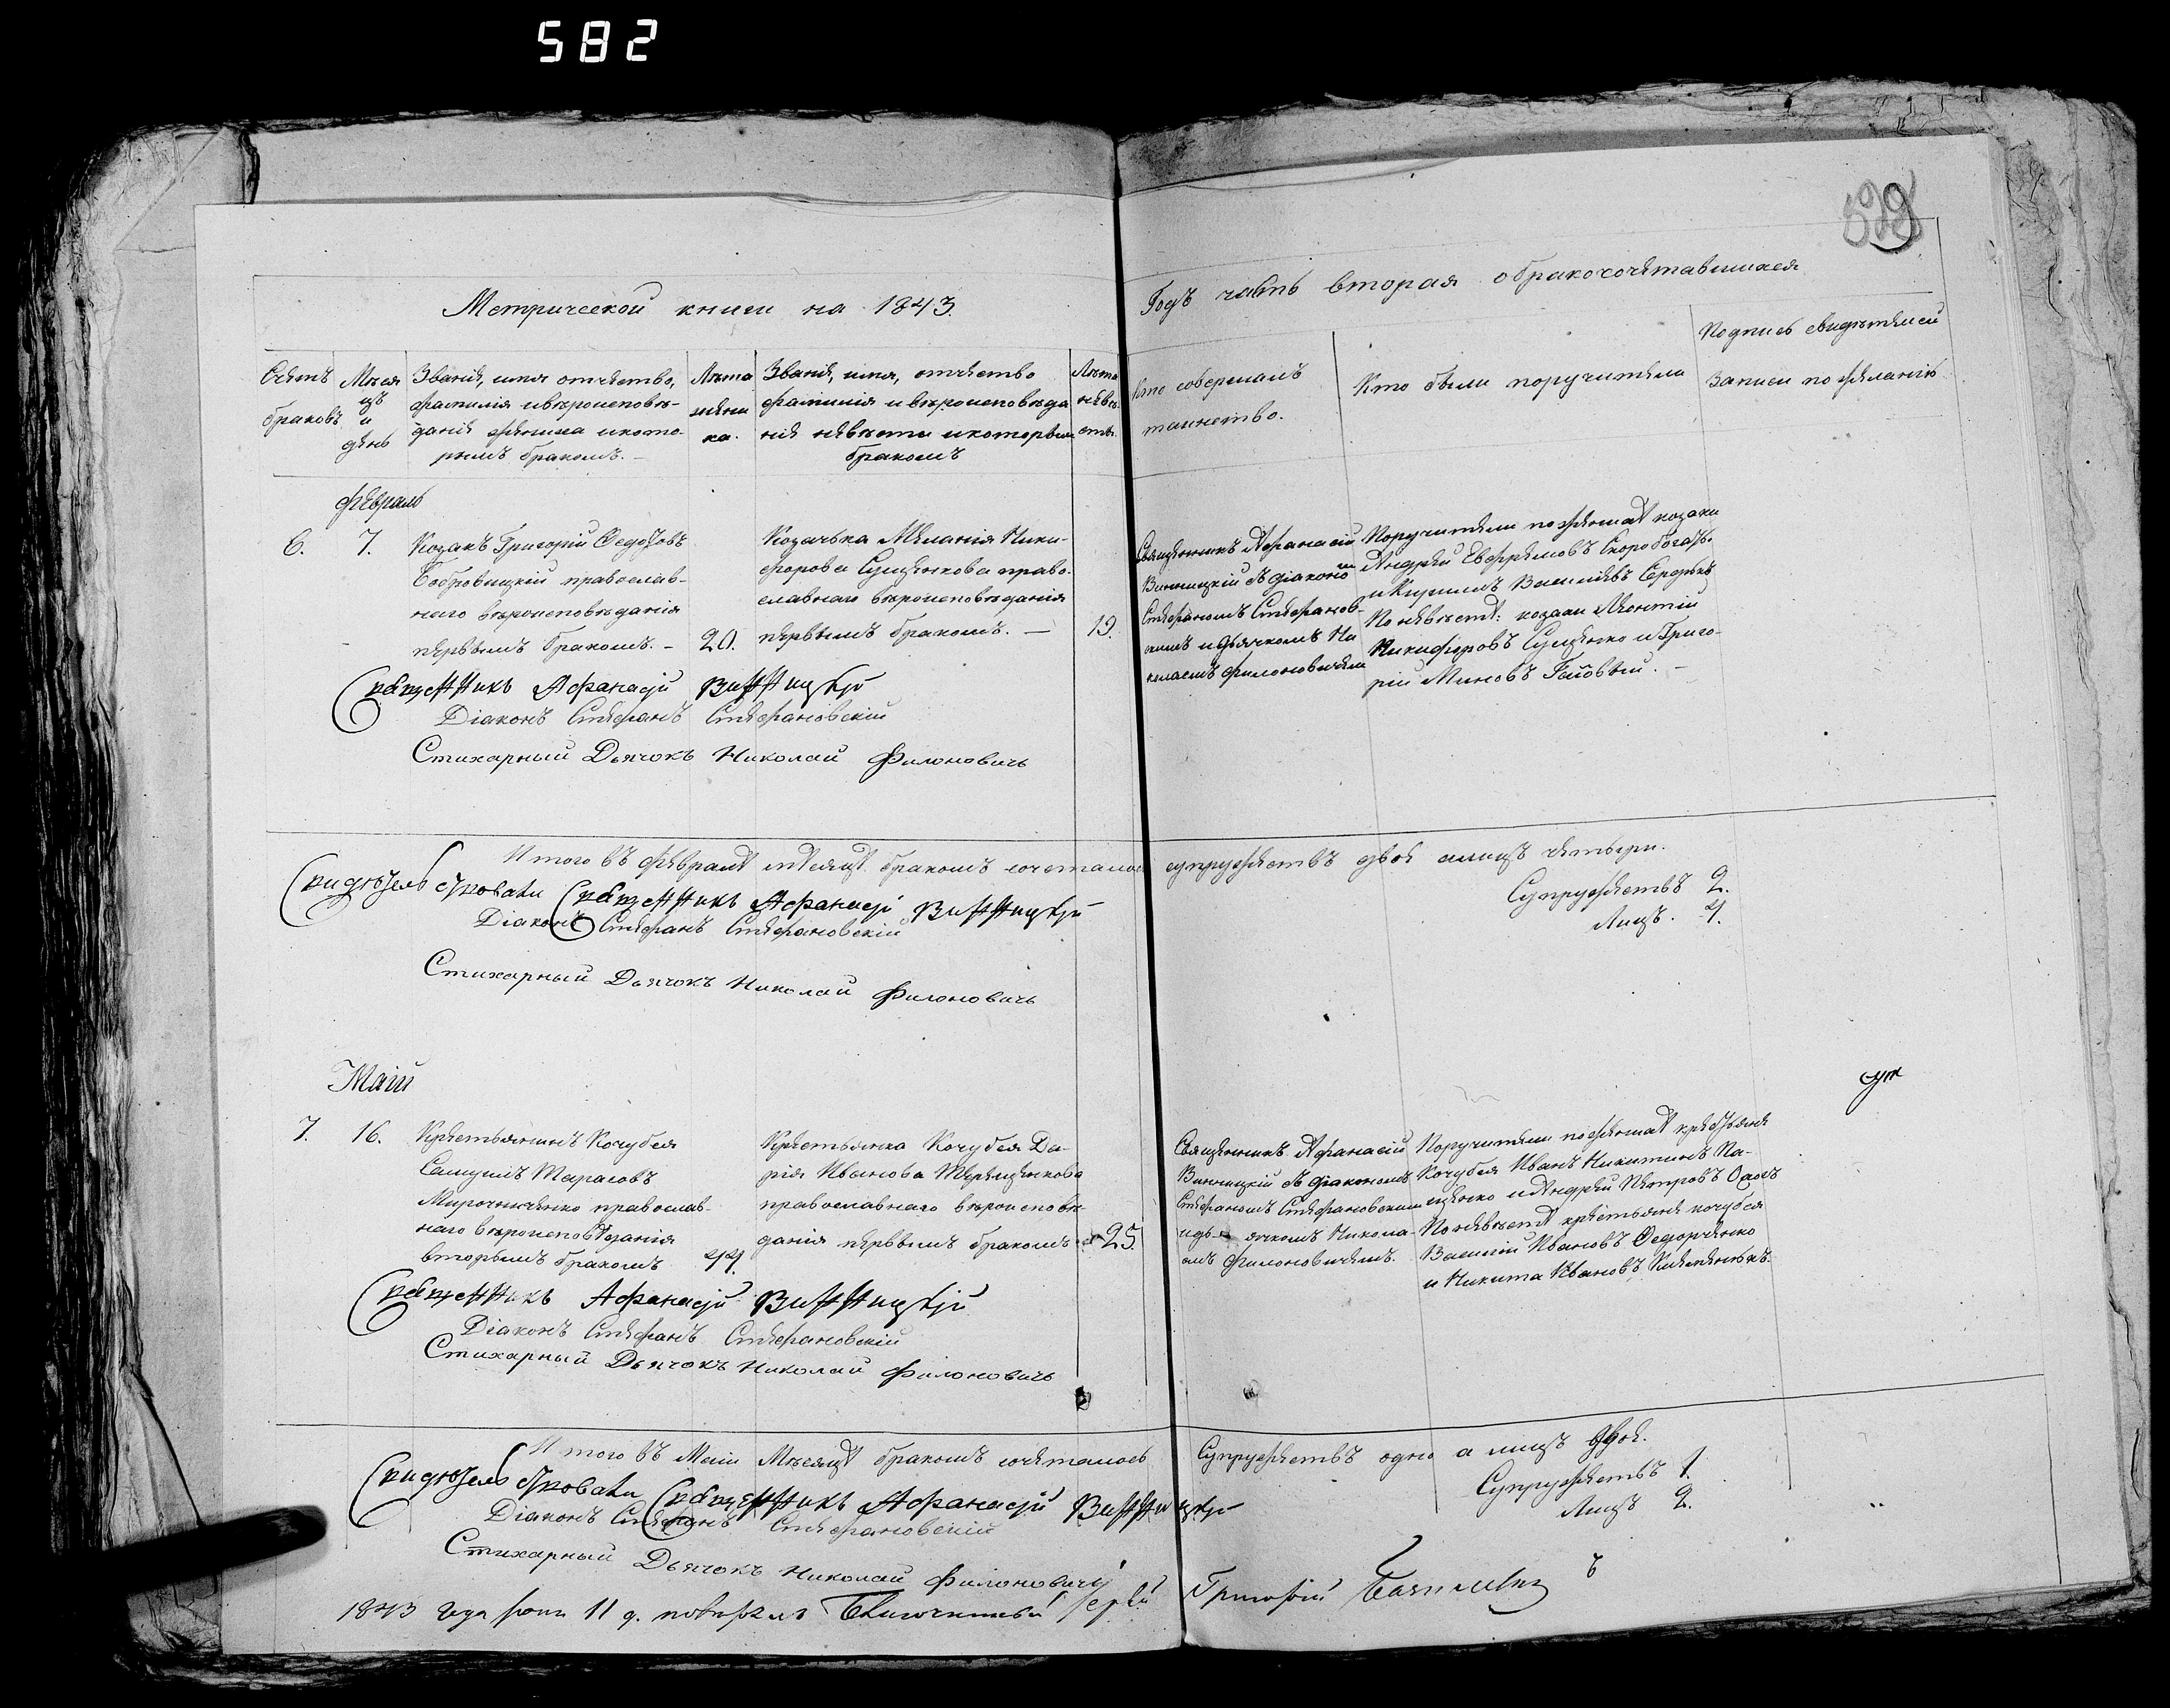 582
Метрической книги на 1843.
Годъ часть вторая о бракосочетавшихся
Счетъ браковъ
Мѣсяцъ и день
Званіе, имя отчество,
фамилія и вѣроисповѣ-
даніе жениха и кото-
рымъ бракомъ.
Лѣта жениха.
Званіе, имя, отчество
фамилія и вѣроисповѣда
ніе невѣсты и которымъ
бракомъ
Лѣта невѣсты.
Кто совершалъ
таинство.
Кто были поручители
Подпись свидѣтелей
записи по желанію
Февраль
6. 7.
Козакъ Григорій Федоровъ
Бобровицкій православ-
наго вѣроисповѣданія
первымъ бракомъ. – 20.
Козачька Меланія Ники-
форова Сущенкова право-
славнаго вѣроисповѣданія
первымъ бракомъ. — 19.
Священникъ Афанасій
Винницкій съ діакономъ
Стефаномъ Стефанов-
скимъ и дьячкомъ Ни
колаемъ Филоновичемъ
Поручители по женихѣ козаки
Андрей Евфремовъ Скоробогать
и Василіевъ
По невѣстѣ: козаки Леонтій
Никифоровъ Сущенко и Григо-
рій Миновъ Гаёвый. –
Священникъ Афанасій Винницкій
Діаконъ Стефанъ Стефановскій
Стихарный Дьячокъ Николай Филоновичь
Итого въ февралѣ мѣсяцѣ бракомъ сочеталось супружествъ двое а лицъ четыри.
Супружествъ 2.
Лицъ. 4.
Свидѣтельствовали Священникъ Афанасій Винницкій
Діаконъ Стефанъ Стефановскій
Стихарный Дьячокъ Николай Филоновичь
Маій
7. 16.
Крестьянинъ Кочубея
Самуилъ Тарасовъ
Мирочниченко православ-
наго вѣроисповѣданія
вторымъ бракомъ 44.
Крестьянка Кочубея Да-
рія Иванова Терещенкова
православнаго вѣроисповѣ-
данія первымъ бракомъ 25.
Священникъ Афанасій
Винницкій съ діакономъ
Стефаномъ Стефановскимъ
и дьячкомъ Никола-
емъ Филоновичемъ.
Поручители по женихѣ крестьяне
Кочубея Иванъ Никитинъ Па-
щенко и Андрей Петровъ
По невѣстѣ крестьяне кочубея
Василій Ивановъ Федорченко
и Никита Ивановъ
Священникъ Афанасій Винницкій
Діаконъ Стефанъ Стефановскій
Стихарный Дьячокъ Николай Филоновичь
Итого въ Маіи Мѣсяцѣ бракомъ сочеталось Супружествъ одно а лицъ двое.
Супружествъ 1.
Лицъ 2.
Свидѣтельствовали Священникъ Афанасій Винницкій
Діаконъ Стефанъ Стефановскій
Стихарный Дьячокъ Николай Филоновичь
1843 года 11 д. повѣрялъ Благочинный Іерей Григорій